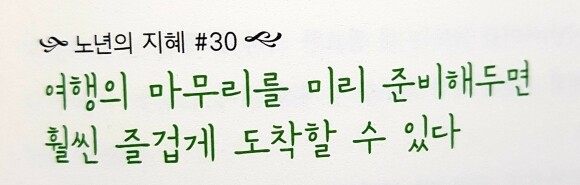 노년의 지혜 #30
여행의 마무리를 미리 준비해두면
훨씬 즐겁게 도착할 수 있다